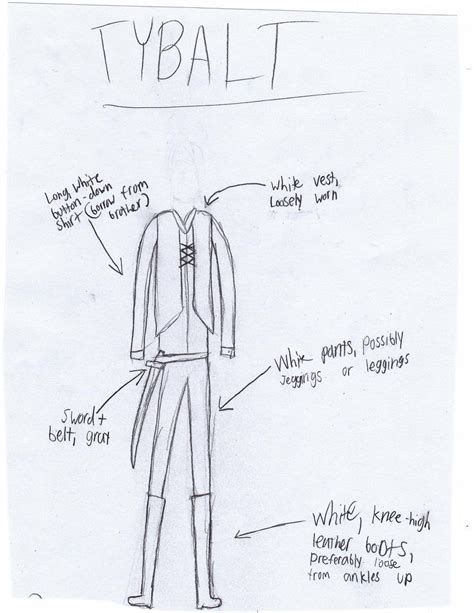 TYBALT
Long, white
button-down
shirt (borrow from
brother)
White vest,
Loosely worn
White pants, possibly
jeggings or leggings
Sword +
belt, gray
White, knee-high
leather boots,
preferably loose
from ankles up